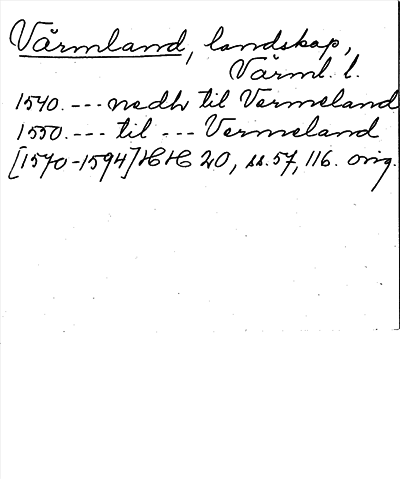 Värmland, landskap,
Värml. l.
1540. --- nedh til Vermeland
1550. --- til --- Vermeland
[1570-1594] HH 20, ss. 57, 116. orig.